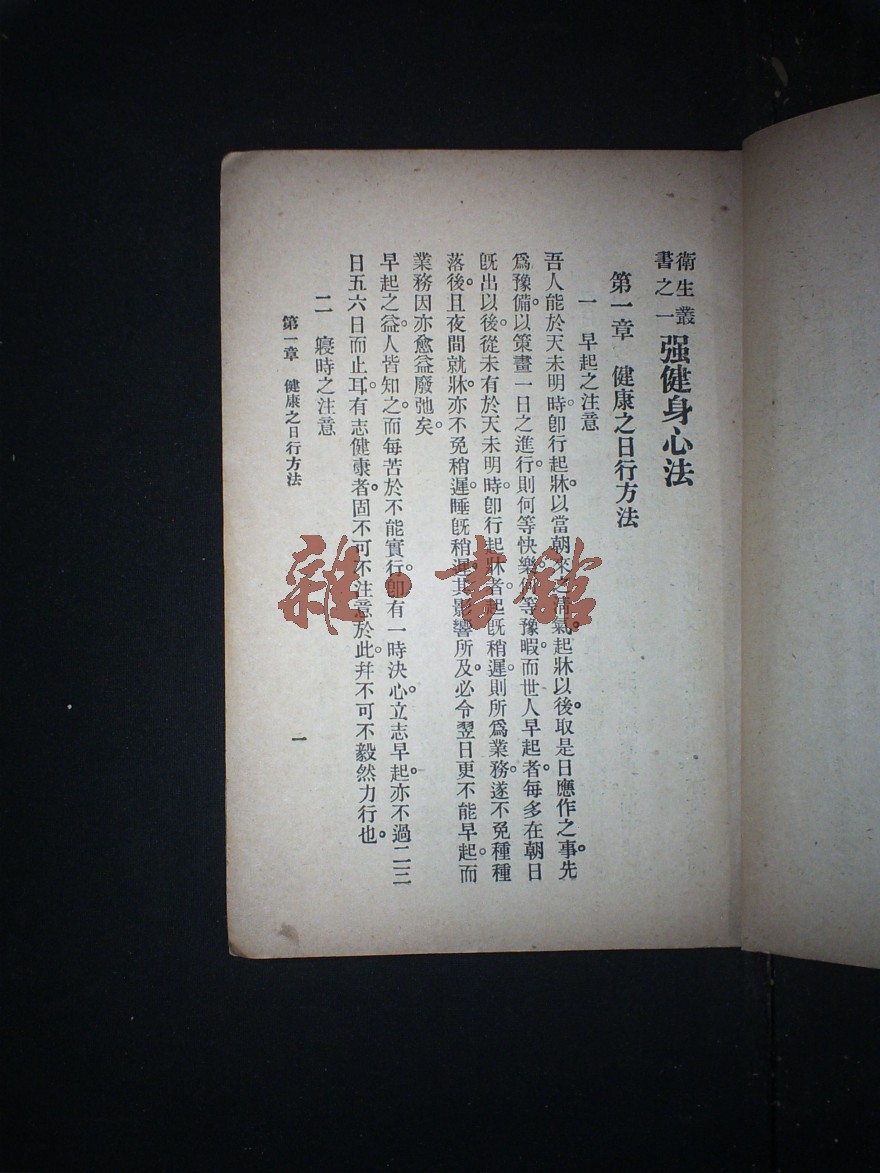 衛生叢
書之一
强健身心法
第一章　健康之日行方法
一　早起之注意
吾人能於天未明時。卽行起牀。以當朝來之淸氣。起牀以後。取是日應作之事。先
爲豫備。以策畫一日之進行。則何等快樂。何等豫暇。而世人早起者。每多在朝日
旣出以後。從未有於天未明時。卽行起牀者。起旣稍遲。則所爲業務。遂不免種種
落後。且夜間就牀。亦不免稍遲。睡旣稍遲。其影響所及。必令翌日更不能早起。而
業務因亦愈益廢弛矣。
早起之益。人皆知之。而每苦於不能實行。卽有一時決心。立志早起。亦不過二三
日五六日而止耳。有志健康者。固不可不注意於此。幷不可不毅然力行也。
二　寢時之注意
第一章　健康之日行方法
一
雜·書館